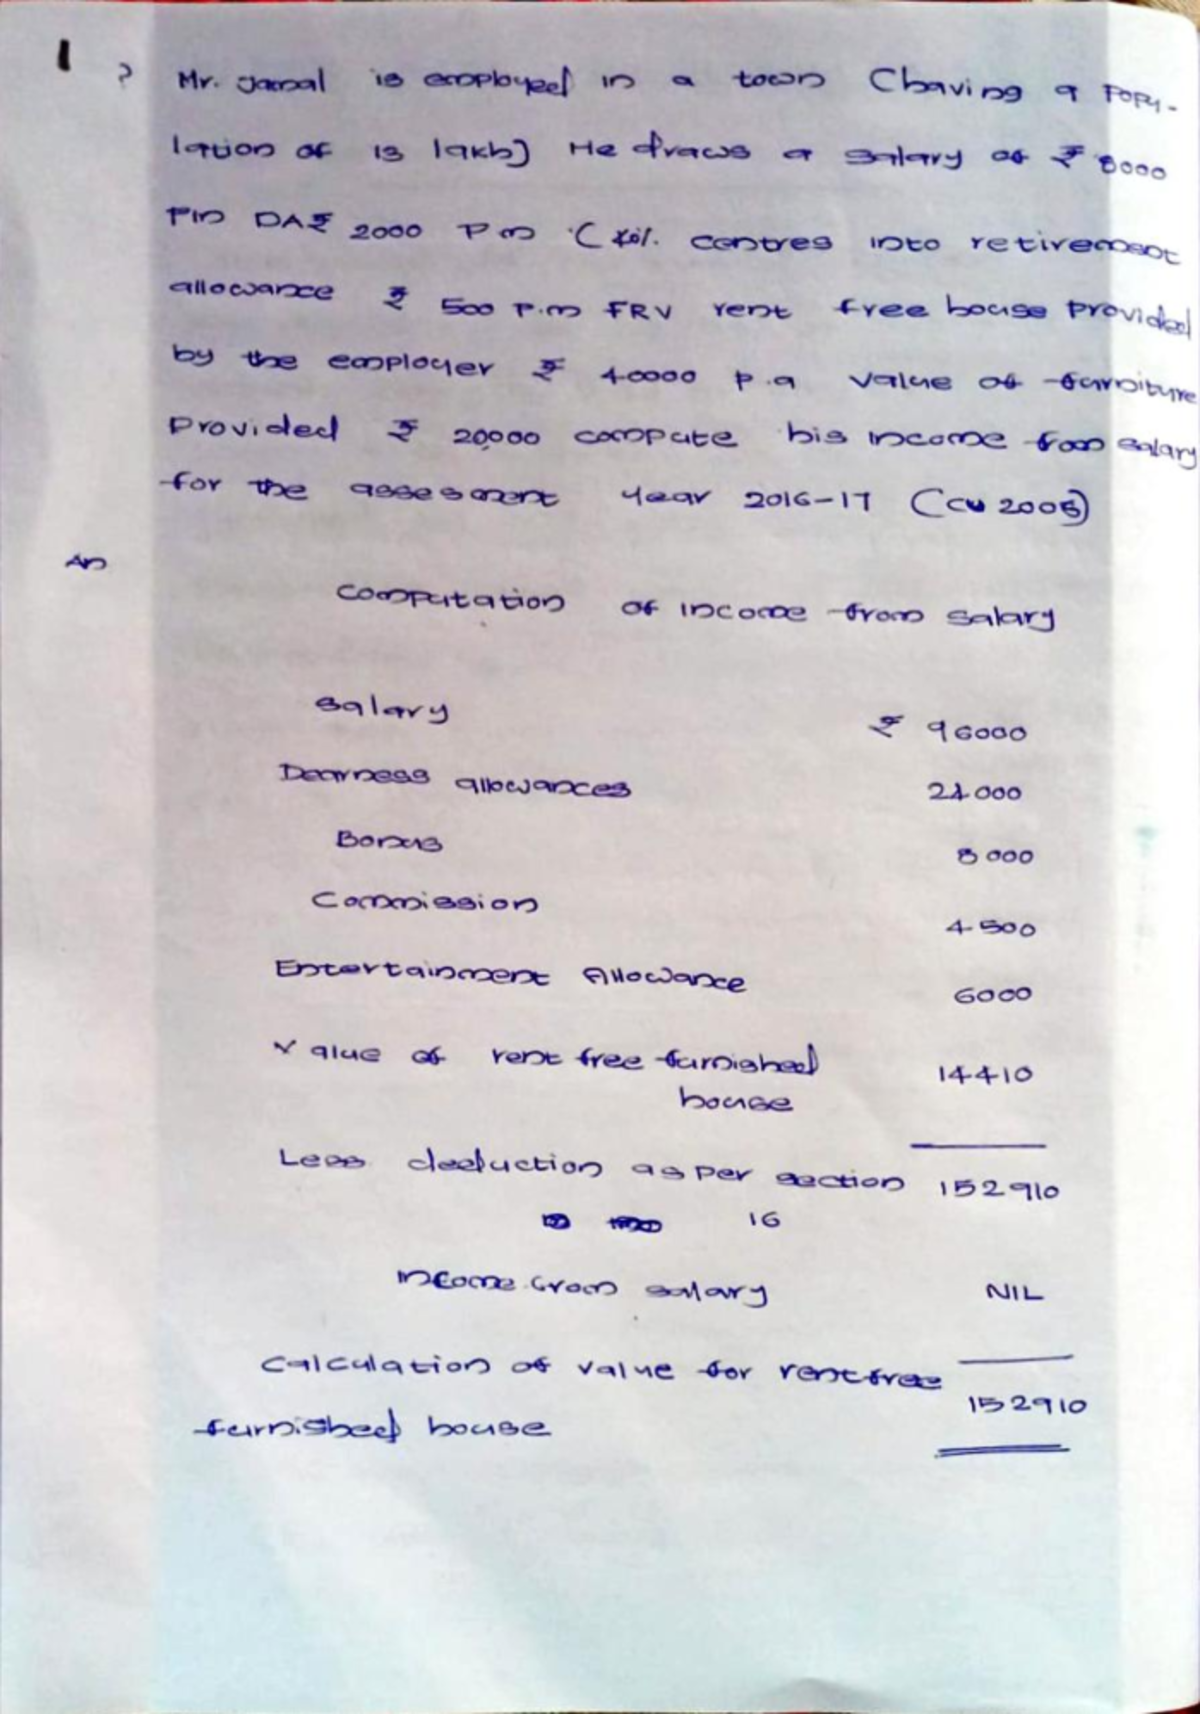 1
? Mr. Jamal is employed in a town (having a Popu-
lation of 13 lakh) He draws a salary of ₹ 8000
Pm DA ₹ 2000 Pm ( % centres into retirement
allowance ₹ 500 P.m FRV rent free house provided
by the employer ₹ 40000 p.a value of furniture
Provided ₹ 20000 compute his income from salary
for the assesment year 2016-17 (CU 2005)
An
Computation of income from salary
Salary ₹ 96000
Dearness allowances 24000
Bonus 8000
Commission 4500
Entertainment Allowance 6000
Value of rent free furnished 14410
house
Less deduction as per section 152910
16
Income from salary NIL
Calculation of value for rent free
152910
furnished house